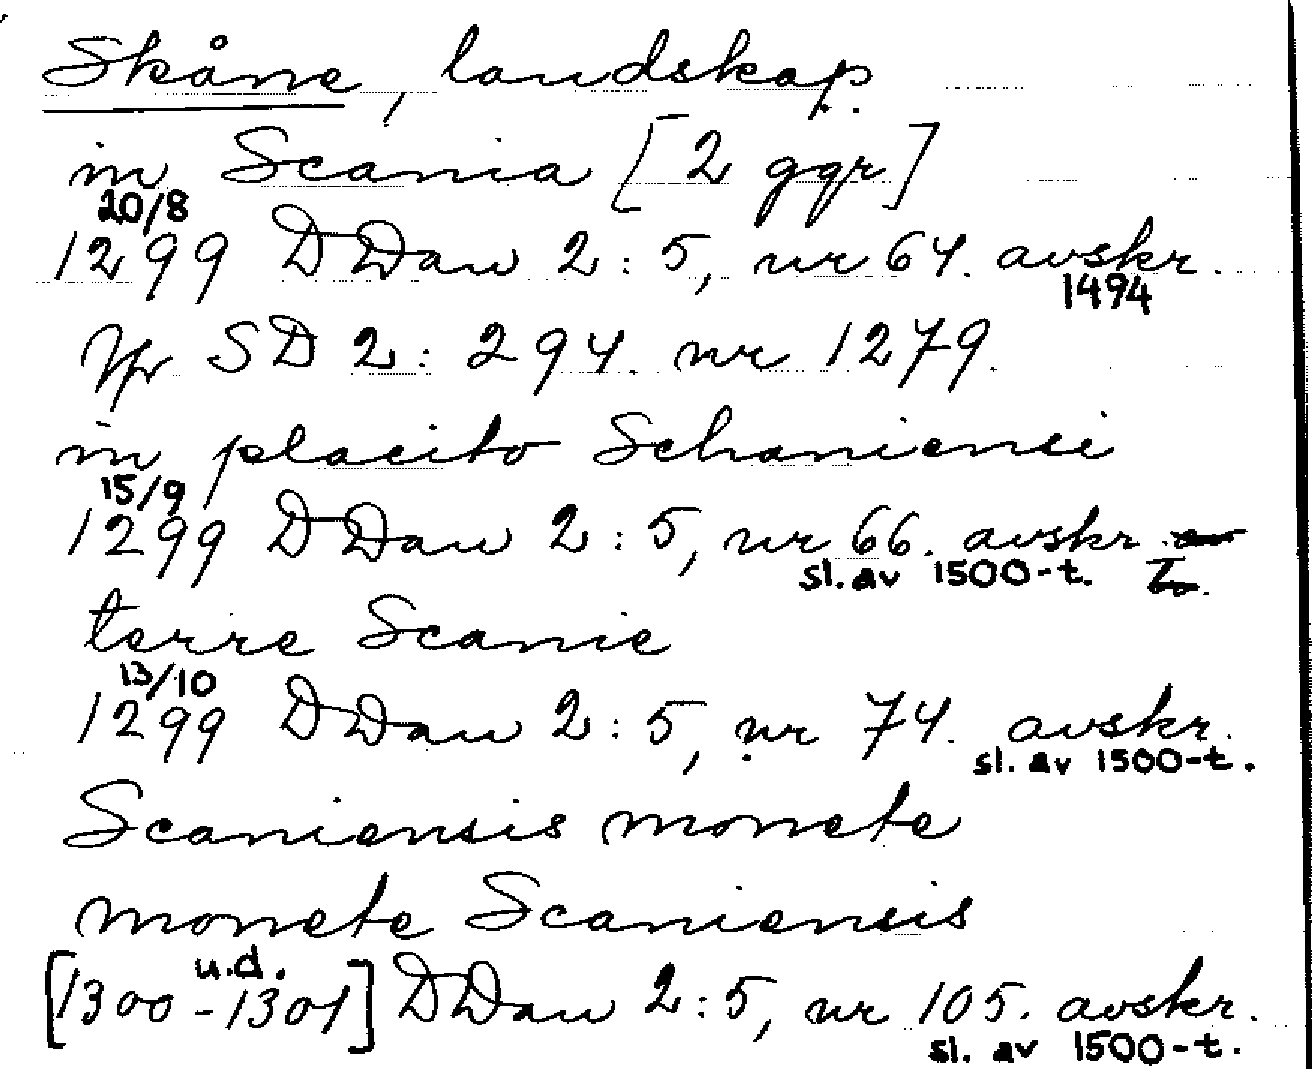 Skåne, landskap.
in Scania [2 ggr]
20/8
1299 DDan 2:5, nr 64. avskr.
1494
Jfr SD 2: 294. nr 1279.
in placito Schaniensi
15/9
1299 DDan 2:5, nr 66. avskr.
sl. av 1500-t.
terre Scanie
13/10
1299 DDan 2:5, nr 74. avskr.
sl. av 1500-t.
Scaniensis monete
monete Scaniensis
u.d.
[1300-1301] DDan 2:5, nr 105. avskr.
sl. av 1500-t.